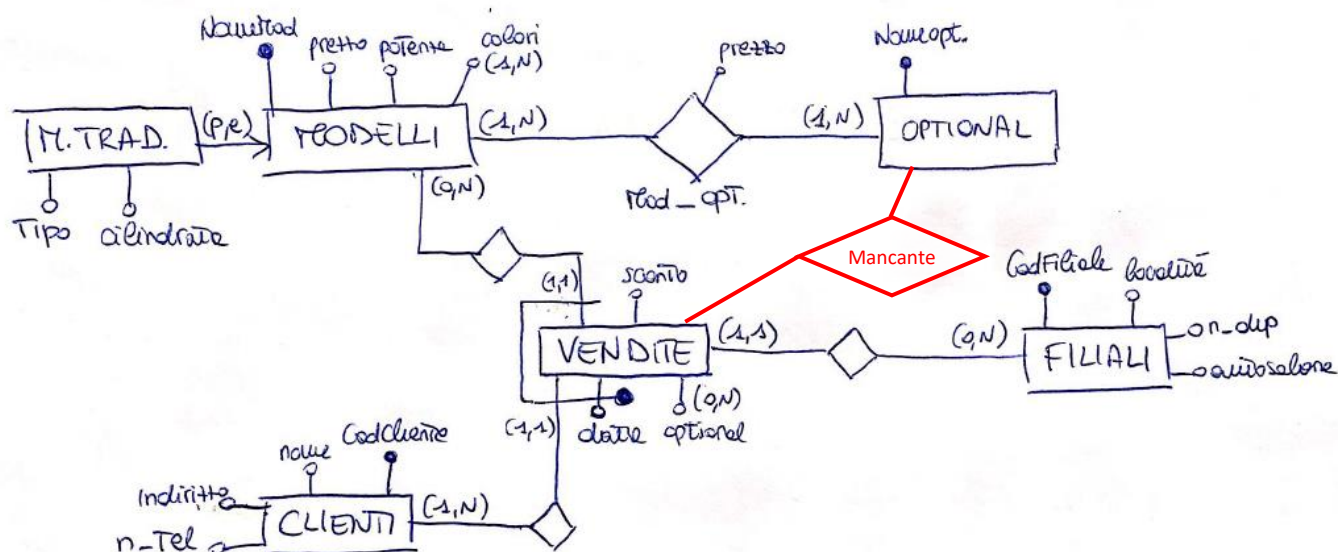 NomeMod
prezzo
potenza
colori
(1,N)
prezzo
Nomeopt.
M.TRAD.
(p,e)
MODELLI
(1,N)
(1,N)
OPTIONAL
(0,N)
Mod_opt.
Tipo
cilindrata
Mancante
CodFiliale
località
(1,1)
sconto
VENDITE
(1,1)
(0,N)
FILIALI
n_dip
autosalone
(1,1)
data
optional
(0,N)
nome
CodCliente
indirizzo
CLIENTI
(1,N)
n_Tel